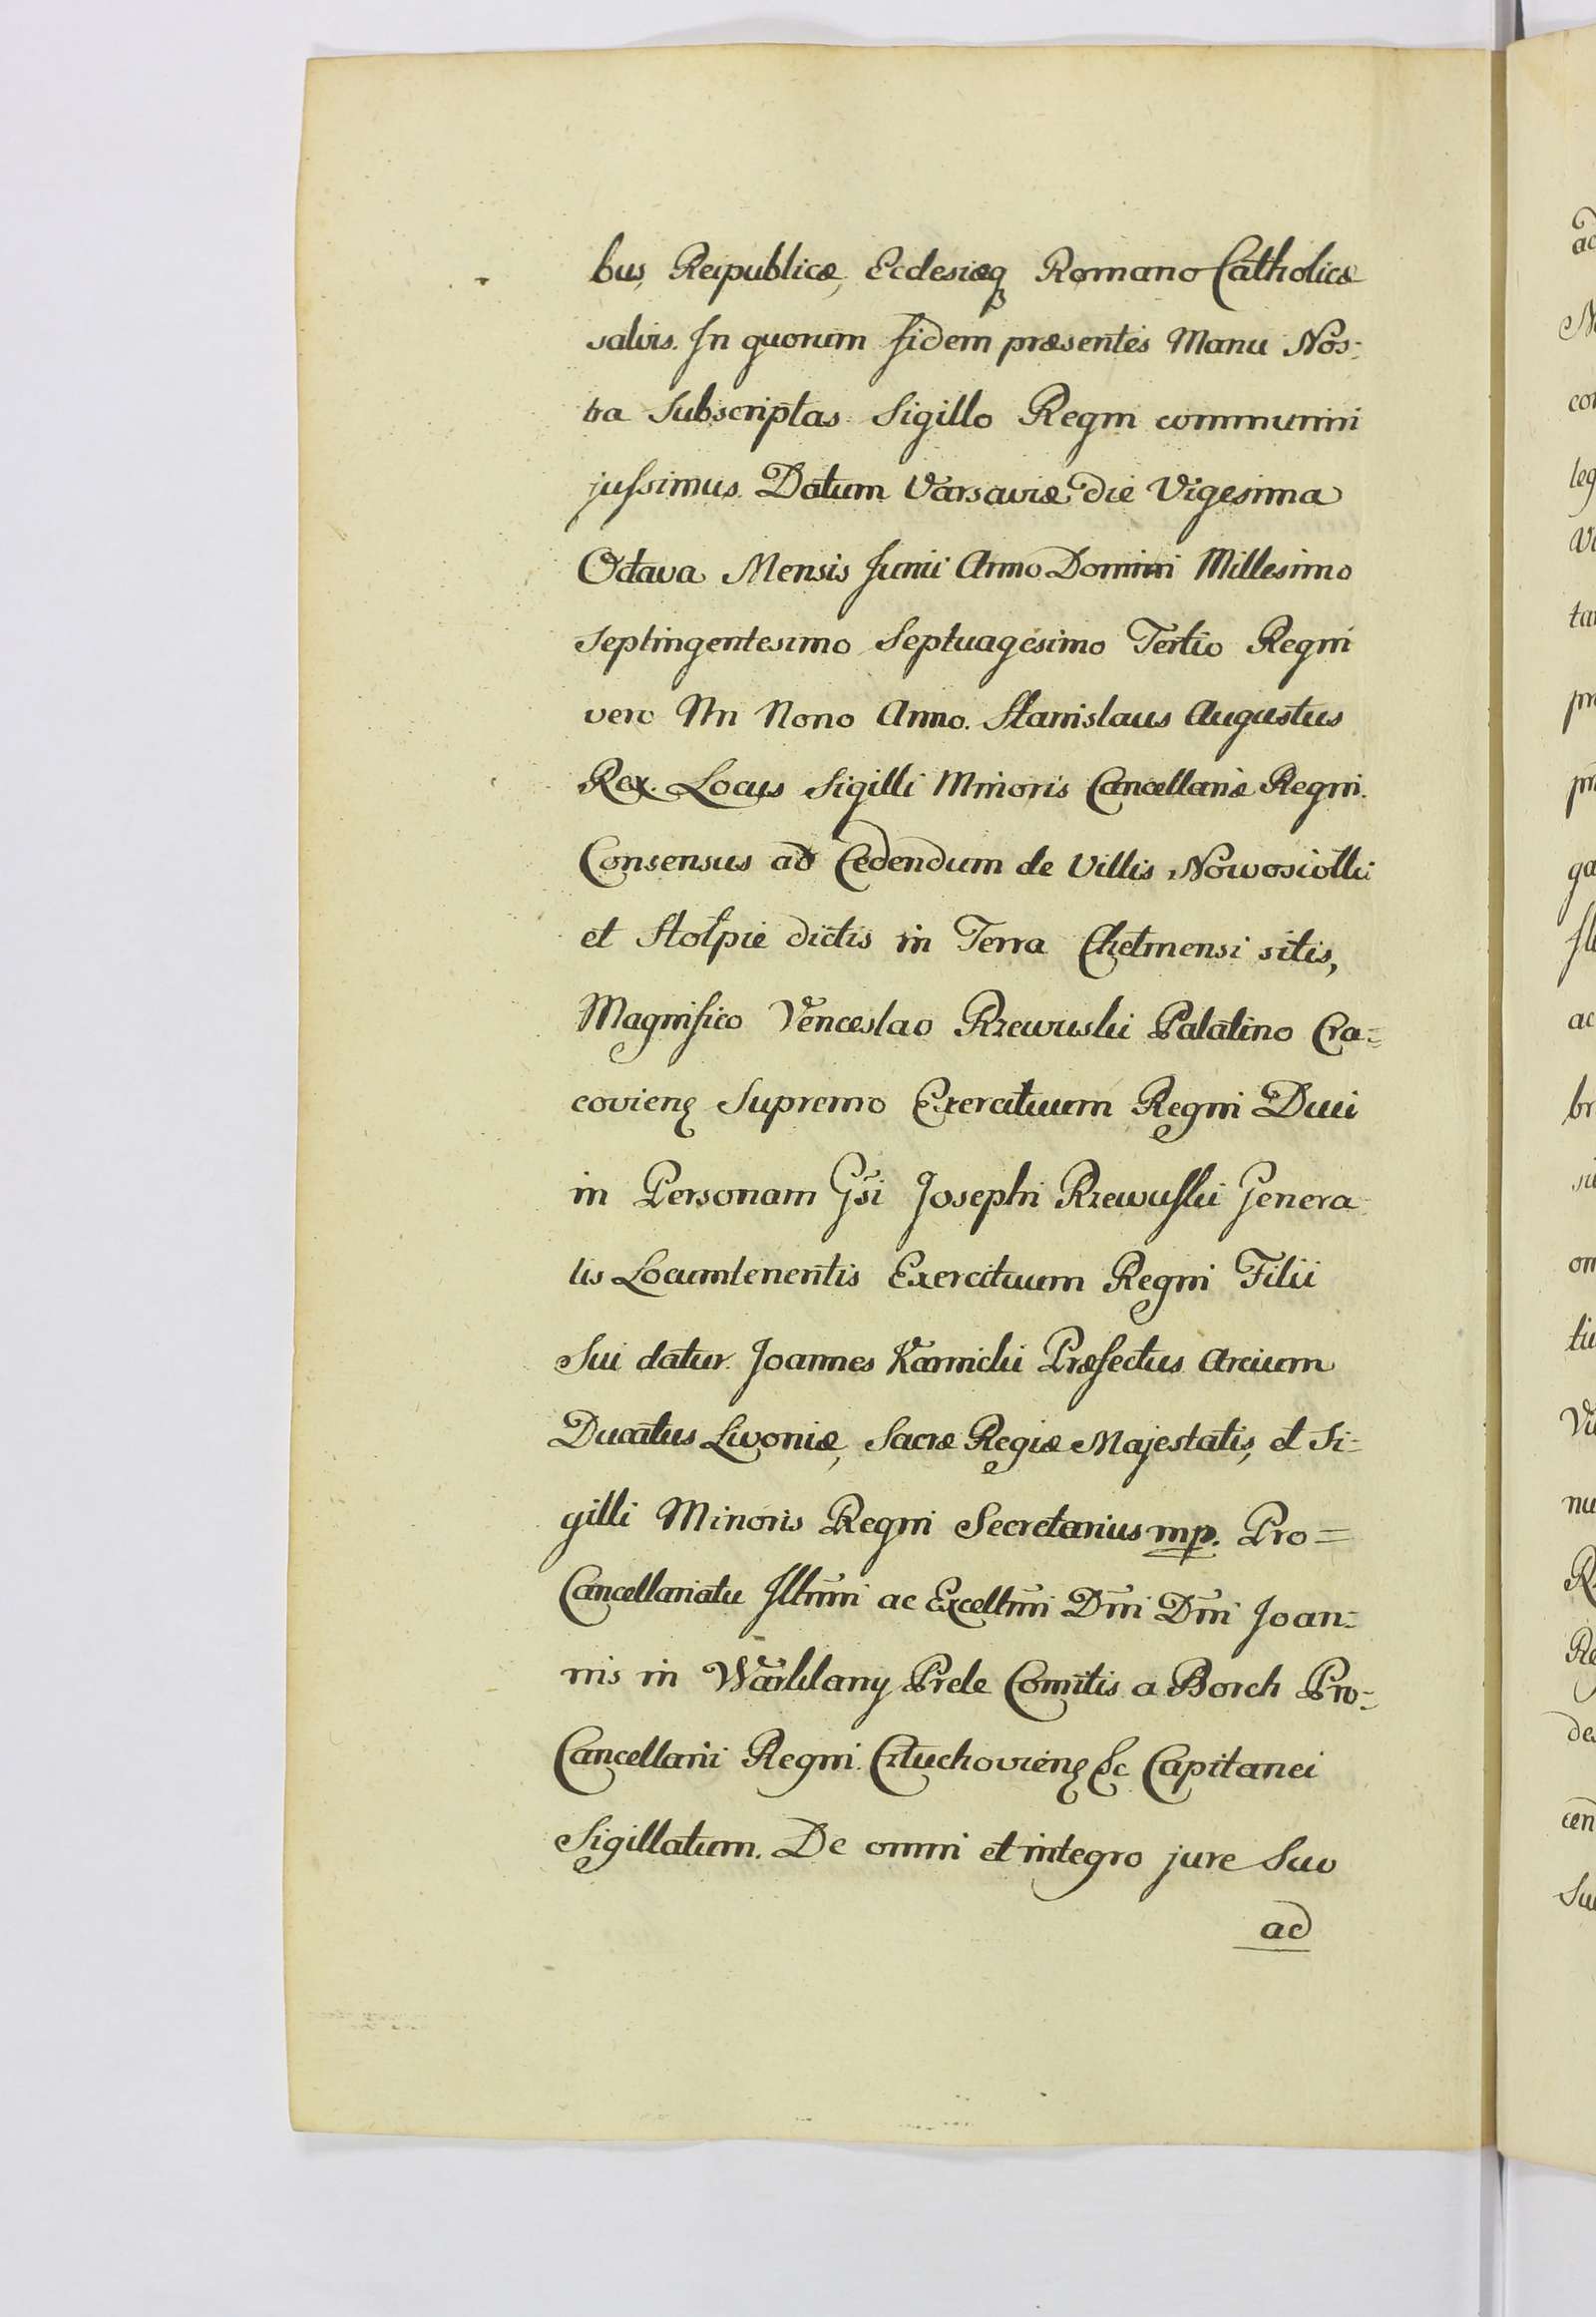 bus, Reipublicæ, Ecclesiæq Romano Catholicæ
salvis. In quorum fidem præsentes Manu Nos=
tra Subscriptas Sigillo Regni communiri
jussimus. Datum Varsaviæ die Vigesima
Octava Mensis Junii Anno Domini Millesimo
Septingentesimo Septuagesimo Tertio Regni
vero Nri Nono Anno. Stanislaus Augustus
Rex. Locus Sigilli Minoris Cancellariæ Regni.
Consensus ad Cedendum de Villis Nowosiołki
et Stołpie dictis in Terra Chełmensi sitis,
Magnifico Venceslao Rzewuski Palatino Cra=
coviens Supremo Exercituum Regni Duci
in Personam Gsi Josephi Rzewuski Genera
lis Locumtenentis Exercituum Regni Filii
Sui datur. Joannes Karnicki Præfectus Arcium
Ducatus Livoniæ, Sacræ Regiæ Majestatis, et Si=
gilli Minoris Regni Secretarius mp. Pro=
Cancellariatu Illmi ac Excellmi Dni Dni Joan=
nis in Warklany Prele Comitis a Borch Pro=
Cancellarii Regni. Człuchoviens &c Capitanei
Sigillatum. De omni et integro jure Suo
ad